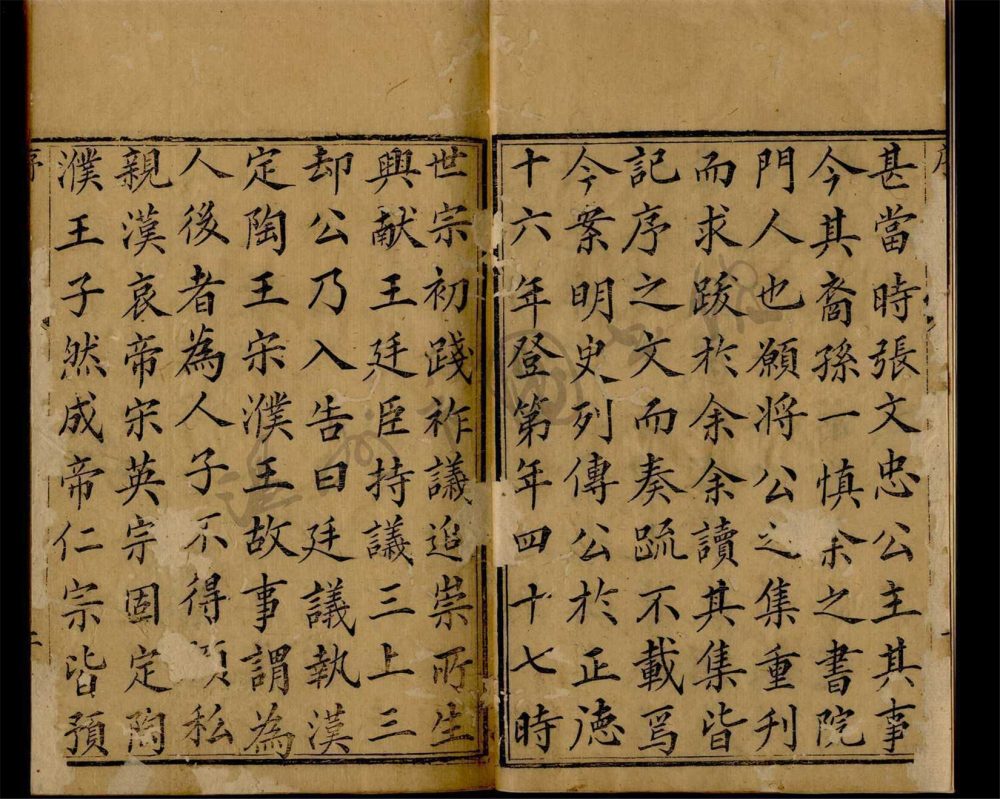 甚當時張文忠公主其事
今其裔孫一慎余之書院
門人也願將公之集重刊
而求跋於余余讀其集皆
記序之文而奏䟽不載焉
今案明史列傳公於正德
十六年登第年四十七時
世宗初踐祚議追崇所生
興献王廷臣持議三上三
却公乃入告曰廷議執漢
定陶王宋濮王故事謂為
人後者為人子不得顧私
親漢哀帝宋英宗固定陶
濮王子然成帝仁宗皆預